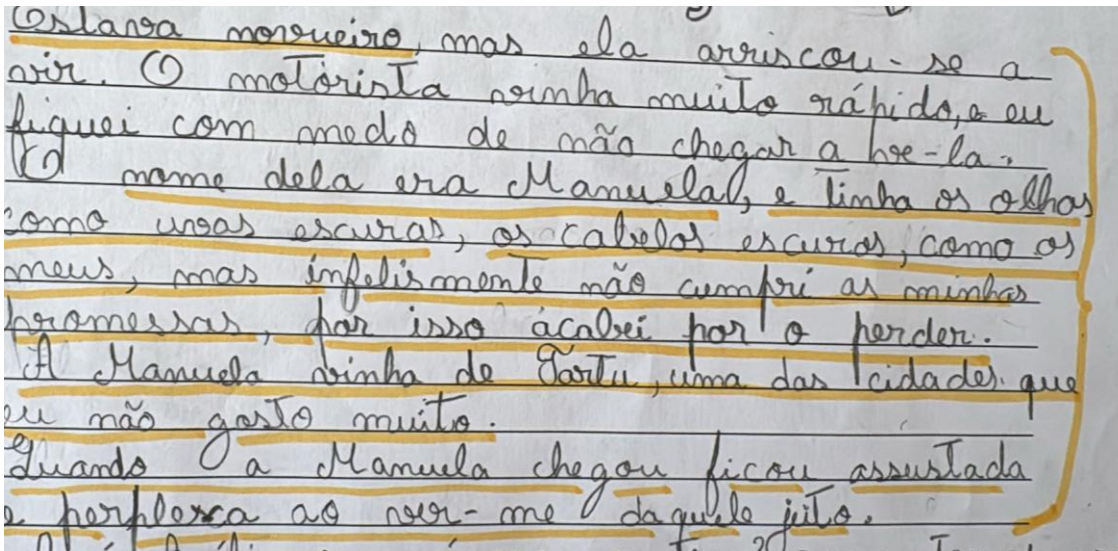 Estava novrueiro, mas ela arriscou-se a
vir. O motorista vinha muito rápido, e eu
fiquei com medo de não chegar a ve-la.
O nome dela era Manuela, e tinha os olhos
como uvas escuras, os cabelos escuros, como os
meus, mas infelismente não cumpri as minhas
promessas, por isso acabei por o perder.
A Manuela vinha de Tartu, uma das cidades que
eu não gosto muito.
Quando a Manuela chegou ficou assustada
e perplexa ao ver-me daquele jeito.